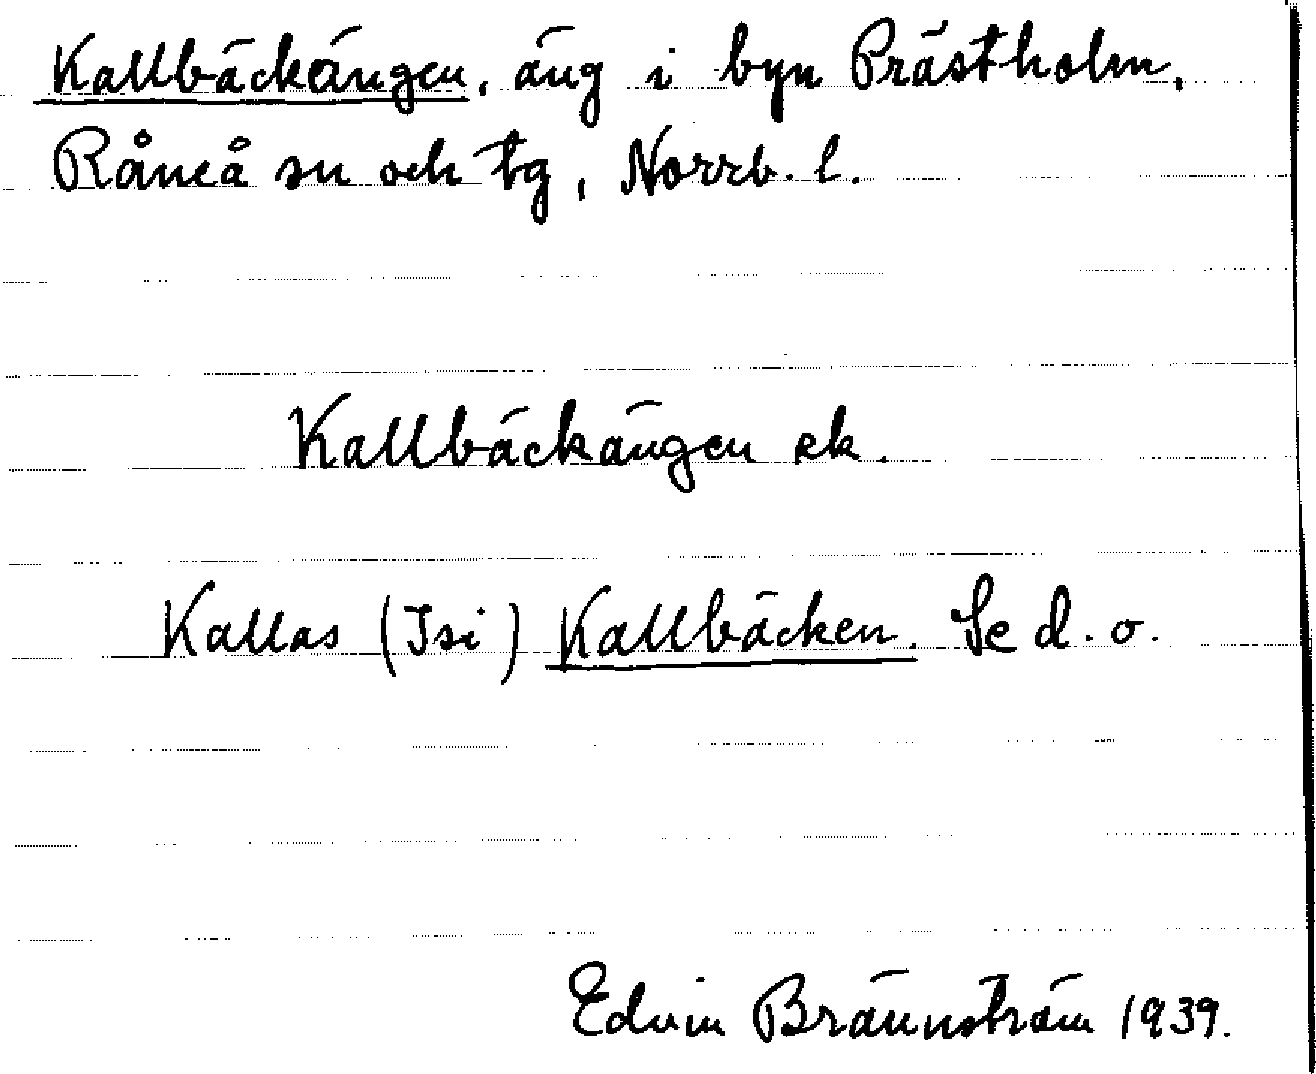 Kallbäckängen, äng i byn Prästholm,
Råneå sn och tg, Norrb. l.
Kallbäckängen ek.
Kallas (Isi) Kallbäcken. Se d. o.
Edvin Brännström 1939.